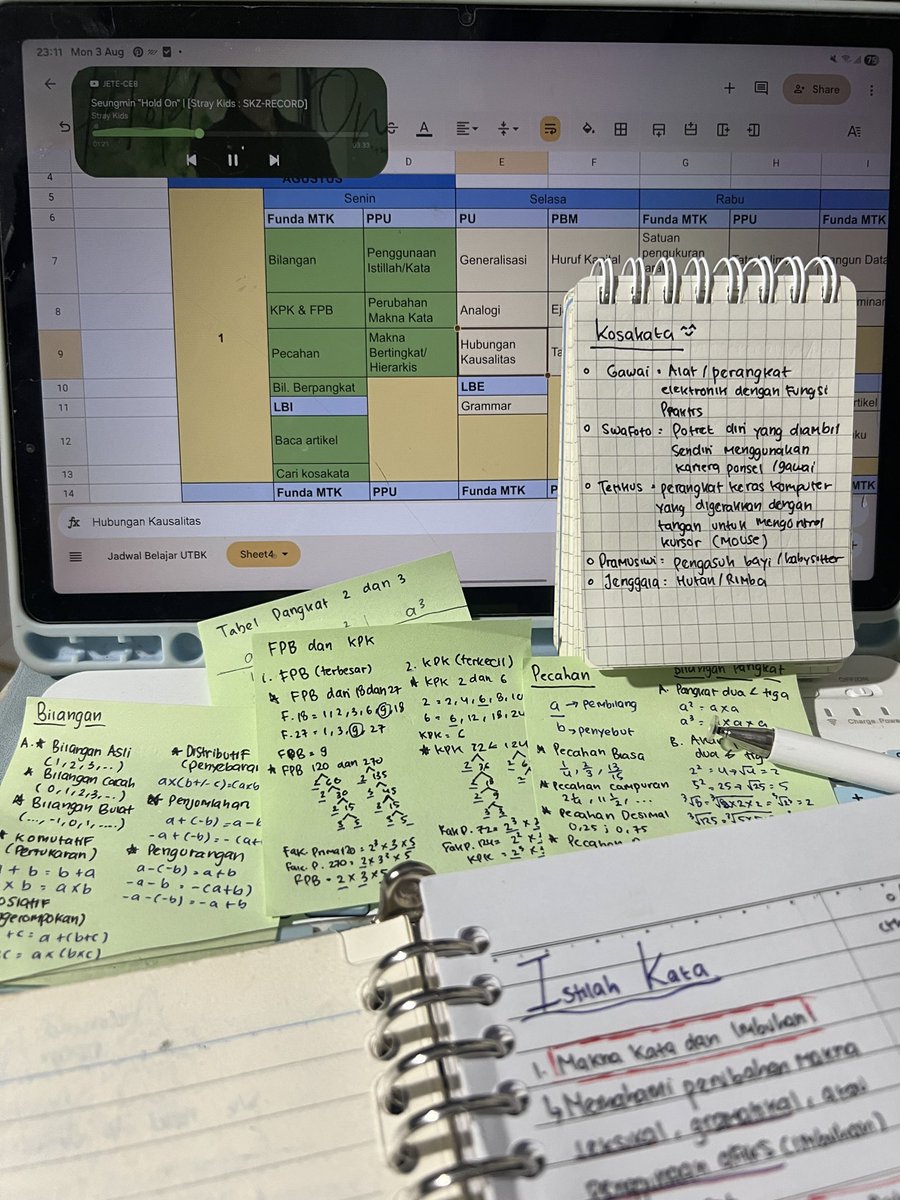 23:11 Mon 3 Aug
79
JETE-CEB
Seungmin "Hold On" | [Stray Kids : SKZ-RECORD]
Stray Kids
01:21
03:33
Share
D E F G H I
4 AGUSTUS
5 Senin Selasa Rabu
6 Funda MTK PPU PU PBM Funda MTK PPU Funda MTK
7 Bilangan Penggunaan Istillah/Kata Generalisasi Huruf Satuan pengukuran
8 KPK & FPB Perubahan Makna Kata Analogi
1
9 Pecahan Makna Bertingkat/ Hierarkis Hubungan Kausalitas
10 Bil. Berpangkat LBE
11 LBI Grammar
12 Baca artikel
13 Cari kosakata
14 Funda MTK PPU Funda MTK
MTK
fx Hubungan Kausalitas
Jadwal Belajar UTBK Sheet4
Kosakata
Gawai : Alat / perangkat
elektronik dengan fungsi
Praktis
Swafoto : Potret diri yang diambil
sendiri menggunakan
kamera ponsel /gawai
Tetikus : perangkat keras komputer
yang digerakkan dengan
tangan untuk mengontrol
kursor (MOUSE)
Pramusiwi : pengasuh bayi / babysitter
Jenggala : Hutan / Rimba
Tabel Pangkat 2 dan 3
a³
FPB dan KPK
1. FPB (terbesar)
FPB dari 18 dan 27
F. 18 = 1, 2, 3, 6, 9, 18
F. 27 = 1, 3, 9, 27
FPB = 9
FPB 120 dan 270
Fak. Prima 120 = 2³ x 3 x 5
Fak. P. 270 = 2 x 3³ x 5
FPB = 2 x 3 x 5
2. KPK (terkecil)
KPK 2 dan 6
2 = 2, 4, 6, 8, 10
6 = 6, 12, 18, 24
KPK = 6
Pecahan
a → Pembilang
b → penyebut
Pecahan Biasa
Pecahan campuran
Pecahan Desimal
0,25 ; 0,75
Bilangan Pangkat
A. Pangkat dua & tiga
a² = a x a
a³ = a x a x a
B.
2² = 4 → √4 = 2
5² = 25 → √25 = 5
Bilangan
A. Bilangan Asli
(1, 2, 3, ...)
Bilangan Cacah
(0, 1, 2, 3, ...)
Bilangan Bulat
(..., -1, 0, 1, ....)
Komutatif
(Pertukaran)
+ b = b + a
x b = a x b
+ c = a + (b + c)
c = a x (b x c)
Distributif
(Penyebaran
Penjumlahan
a + (-b) = a - b
Pengurangan
a - (-b) = a + b
-a - b = -(a + b)
-a - (-b) = -a + b
Istilah Kata
1. Makna Kata dan Imbuhan
↳ Memahami perubahan makna
leksikal, gramatikal, atau
penggunaan afiks (imbuhan)